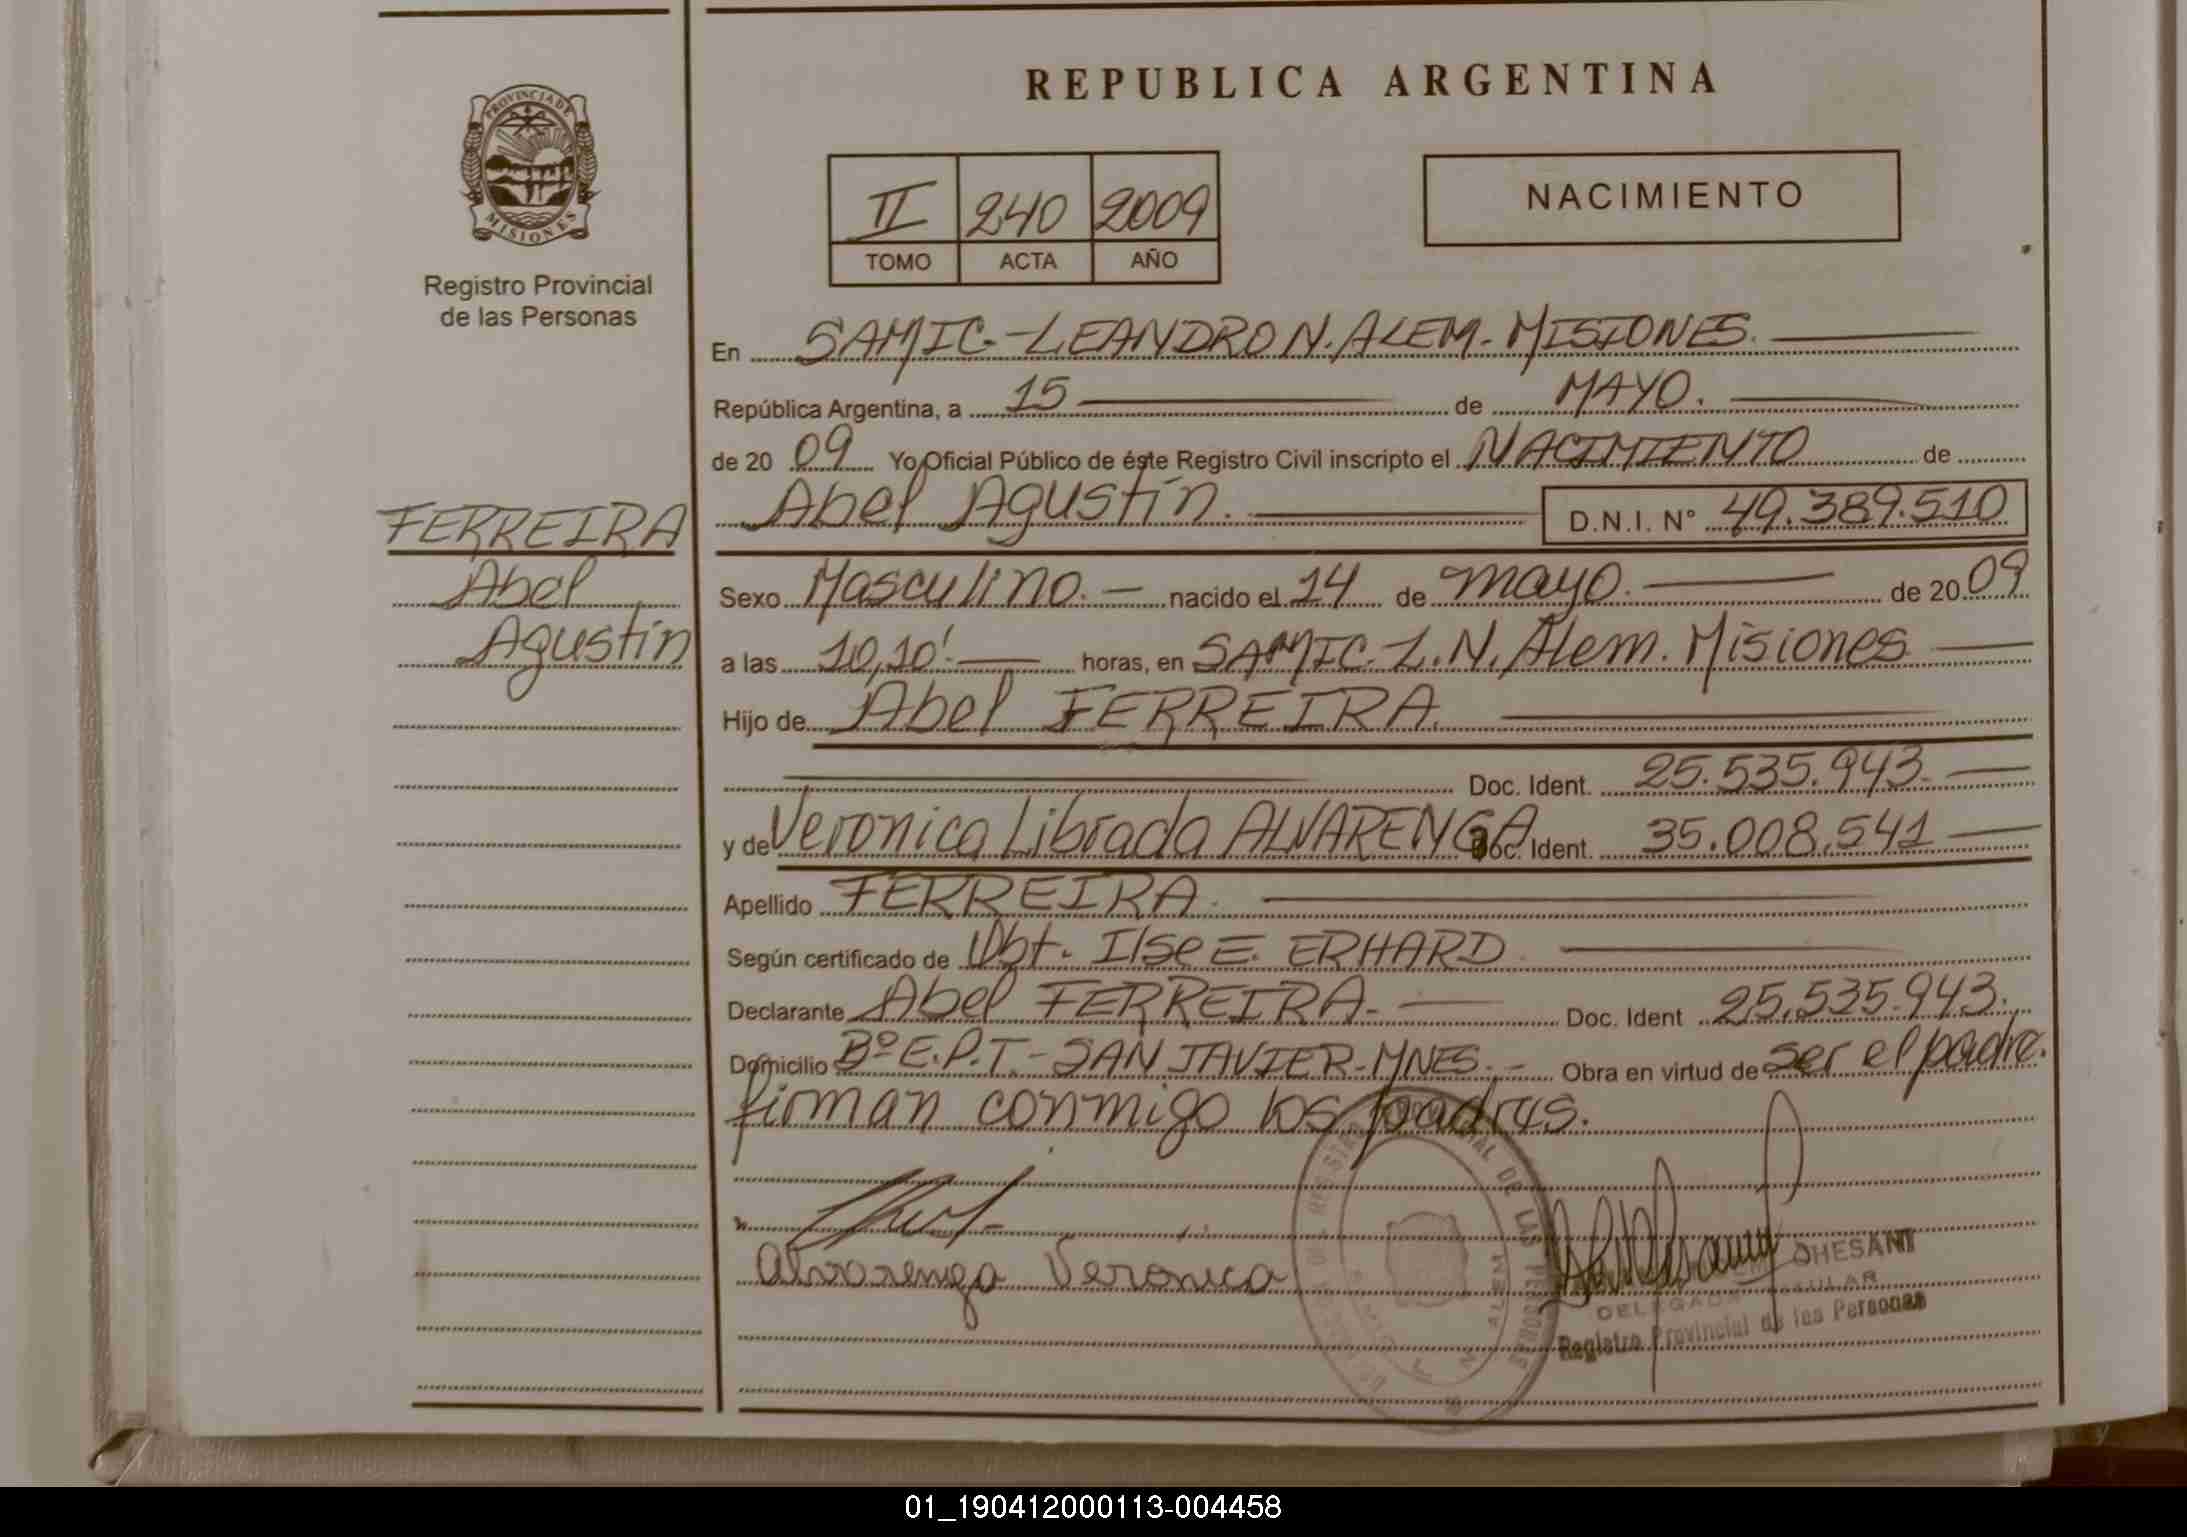 REPUBLICA ARGENTINA
PROVINCIA DE
MISIONES
Registro Provincial
de las Personas
II 240 2009
TOMO ACTA AÑO
NACIMIENTO
En SAMIC-LEANDRO N. ALEM-MISIONES.
República Argentina, a 15 de MAYO.
de 20 09 Yo Oficial Público de éste Registro Civil inscripto el NACIMIENTO de
Abel Agustín. D.N.I. N° 49.389.510
FERREIRA
Abel
Agustín
Sexo Masculino. nacido el 14 de mayo. de 20 09
a las 10,10'. horas, en SAMIC. L.N. Alem. Misiones
Hijo de Abel FERREIRA.
Doc. Ident. 25.535.943.
y de Veronica Librada ALVARENGA Doc. Ident. 35.008.541
Apellido FERREIRA.
Según certificado de Obt. Ilse E. ERHARD
Declarante Abel FERREIRA. Doc. Ident 25.535.943.
Domicilio Bº E.P.T.- SAN JAVIER-MNES. Obra en virtud de ser el padre.
firman conmigo los padres.
Alvarenga Veronica
REGISTRO PROVINCIAL DE LAS PERSONAS
ALEM
DELEGADA TITULAR
Registro Provincial de las Personas
01_190412000113-004458